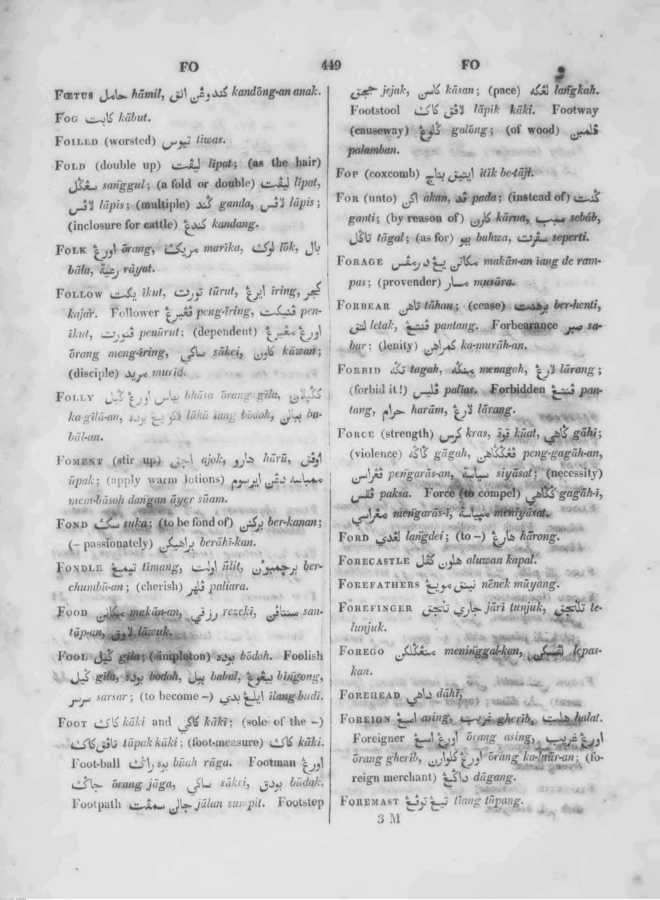 FO 449 FO
FŒTUS حامل hāmil, كندوڠن انق kandōng-an anak.
FOG كابت kābut.
FOILED (worsted) تيوس tiwas.
FOLD (double up) ليڤت līpat; (as the hair)
سڠݢل sanggul; (a fold or double) ليڤت līpat,
لاڤس lāpis; (multiple) ݢند ganda, لاڤس lāpis;
(inclosure for cattle) كندڠ kandang.
FOLK اورڠ ōrang, مريك marīka, لوك lōk, بال
bāla, رعية rāyat.
FOLLOW ايكت īkut, تورت tūrut, ايرڠ īring,
kajar. Follower peng-īring, pen-
īkut, penūrut; (dependent)
ōrang meng-īring, ساكي sākei, كاون kāwan;
(disciple) مريد murīd.
FOLLY بهاس اورڠ ݢيل bhāsa ōrang gīla,
ka-gīlā-an, lākū iang bōdoh, ba-
bāl-an.
FOMENT (stir up) اجق ajok, هارو hārū, اوڤق
ūpak; (apply warm lotions)
mem-bāsoh dangan āyer sūam.
FOND سك suka; (to be fond of) بركنن ber-kanan;
(– passionately) براهيكن berāhī-kan.
FONDLE تيمڠ tīmang, اولت ūlit, ber-
chumbū-an; (cherish) ڤلهر paliara.
FOOD ماكانن makān-an, رزقي rezekī, سنتاڤن san-
tāp-an, لاوق lāwuk.
FOOL ݢيل gīla; (simpleton) بوده bōdoh. Foolish
ݢيل gīla, بوده bōdoh, ببل babal, بيڠوڠ bīngong,
سرسر sarsar; (to become –) ايلڠ بدي īlang budī.
FOOT كاك kāki and كاكي kākī; (sole of the –)
تاڤق كاك tāpak kāki; (foot-measure) كاك kāki.
Foot-ball بوه راݢ būah rāga. Footman اورڠ
جاݢ ōrang jāga, ساكي sākei, بودق būdak.
Footpath جالن سمڤت jālan sumpit. Footstep
ججق jejak, كاسن kāsan; (pace) لڠكه langkah.
Footstool لاڤق كاك lāpik kāki. Footway
(causeway) ݢلوڠ galōng; (of wood) ڤلمبن
palamban.
FOP (coxcomb) ايتيق بتاج ītīk be-tājī.
FOR (unto) اكن akan, ڤد pada; (instead of) ݢنت
ganti; (by reason of) كارن kārna, سبب sebāb,
تاݢل tāgal; (as for) بهو bahwa, سڤرت seperti.
FORAGE makān-an iang de ram-
pas; (provender) مسار musāra.
FORBEAR تاهن tāhan; (cease) برهنت ber-henti,
لتق letak, ڤنتڠ pantang. Forbearance صبر sa-
bar; (lenity) كمراهن ka-murāh-an.
FORBID تݢه tagah, منݢه menagoh, لارڠ lārang;
(forbid it!) ڤليس palīas. Forbidden ڤنتڠ pan-
tang, حرام harām, لارڠ lārang.
FORCE (strength) كرس kras, قوة kūat, ݢاهي gāhī;
(violence) ݢاݢه gāgah, peng-gagāh-an,
pengarās-an, سياسة siyāsat; (necessity)
ڤقس paksa. Force (to compel) ݢݢاهي gagāh-ī,
mengarās-ī, مياسة menīyāsat.
FORD لڠدي langdei; (to –) هارڠ hārong.
FORECASTLE هلون كڤل aluwan kapal.
FOREFATHERS نينق مويڠ nēnek mūyang.
FOREFINGER جاري تنجق jāri tunjuk, تلنجق te-
lunjuk.
FOREGO منڠݢلكن meninggal-kan, لڤسكن lepas-
kan.
FOREHEAD داهي dāhī.
FOREIGN اسڠ asing, غريب gherīb, هلت halat.
Foreigner اورڠ اسڠ ōrang asing, اورڠ غريب
ōrang gherīb, اورڠ كلوارن ōrang ka-lūār-an; (fo-
reign merchant) داݢڠ dāgang.
FOREMAST تيڠ توڤڠ tīang tūpang.
3 M